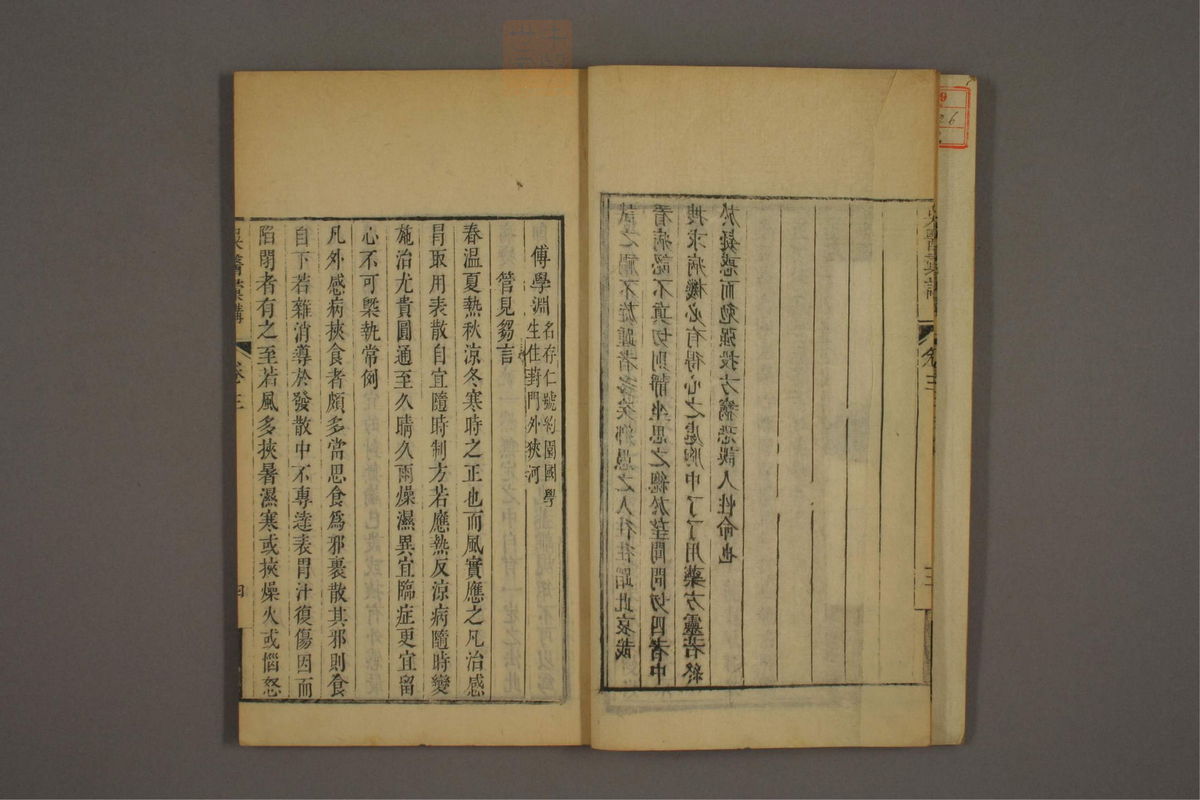 吳醫彙講
卷三
試之禍不旋踵者多矣鄉愚之人往往蹈此哀哉
看病認不真切則靜坐思之總於望聞問切四者中
搜求病機必有得心之處胸中了了用藥方靈若終
於疑惑而勉强投方竊恐誤人性命也
傅學淵
名存仁號約園國學
生住葑門外狹河
管見芻言
春溫夏熱秋涼冬寒時之正也而風實應之凡治感
冒取用表散自宜隨時制方若應熱反涼病隨時變
施治尤貴圓通至久晴久雨燥濕異宜臨症更宜留
心不可槩執常例
凡外感病挾食者頗多當思食爲邪裹散其邪則食
自下若雜消導於發散中不專達表胃汁復傷因而
陷閉者有之至若風多挾暑濕寒或挾燥火或惱怒
吳醫彙講
卷三
四